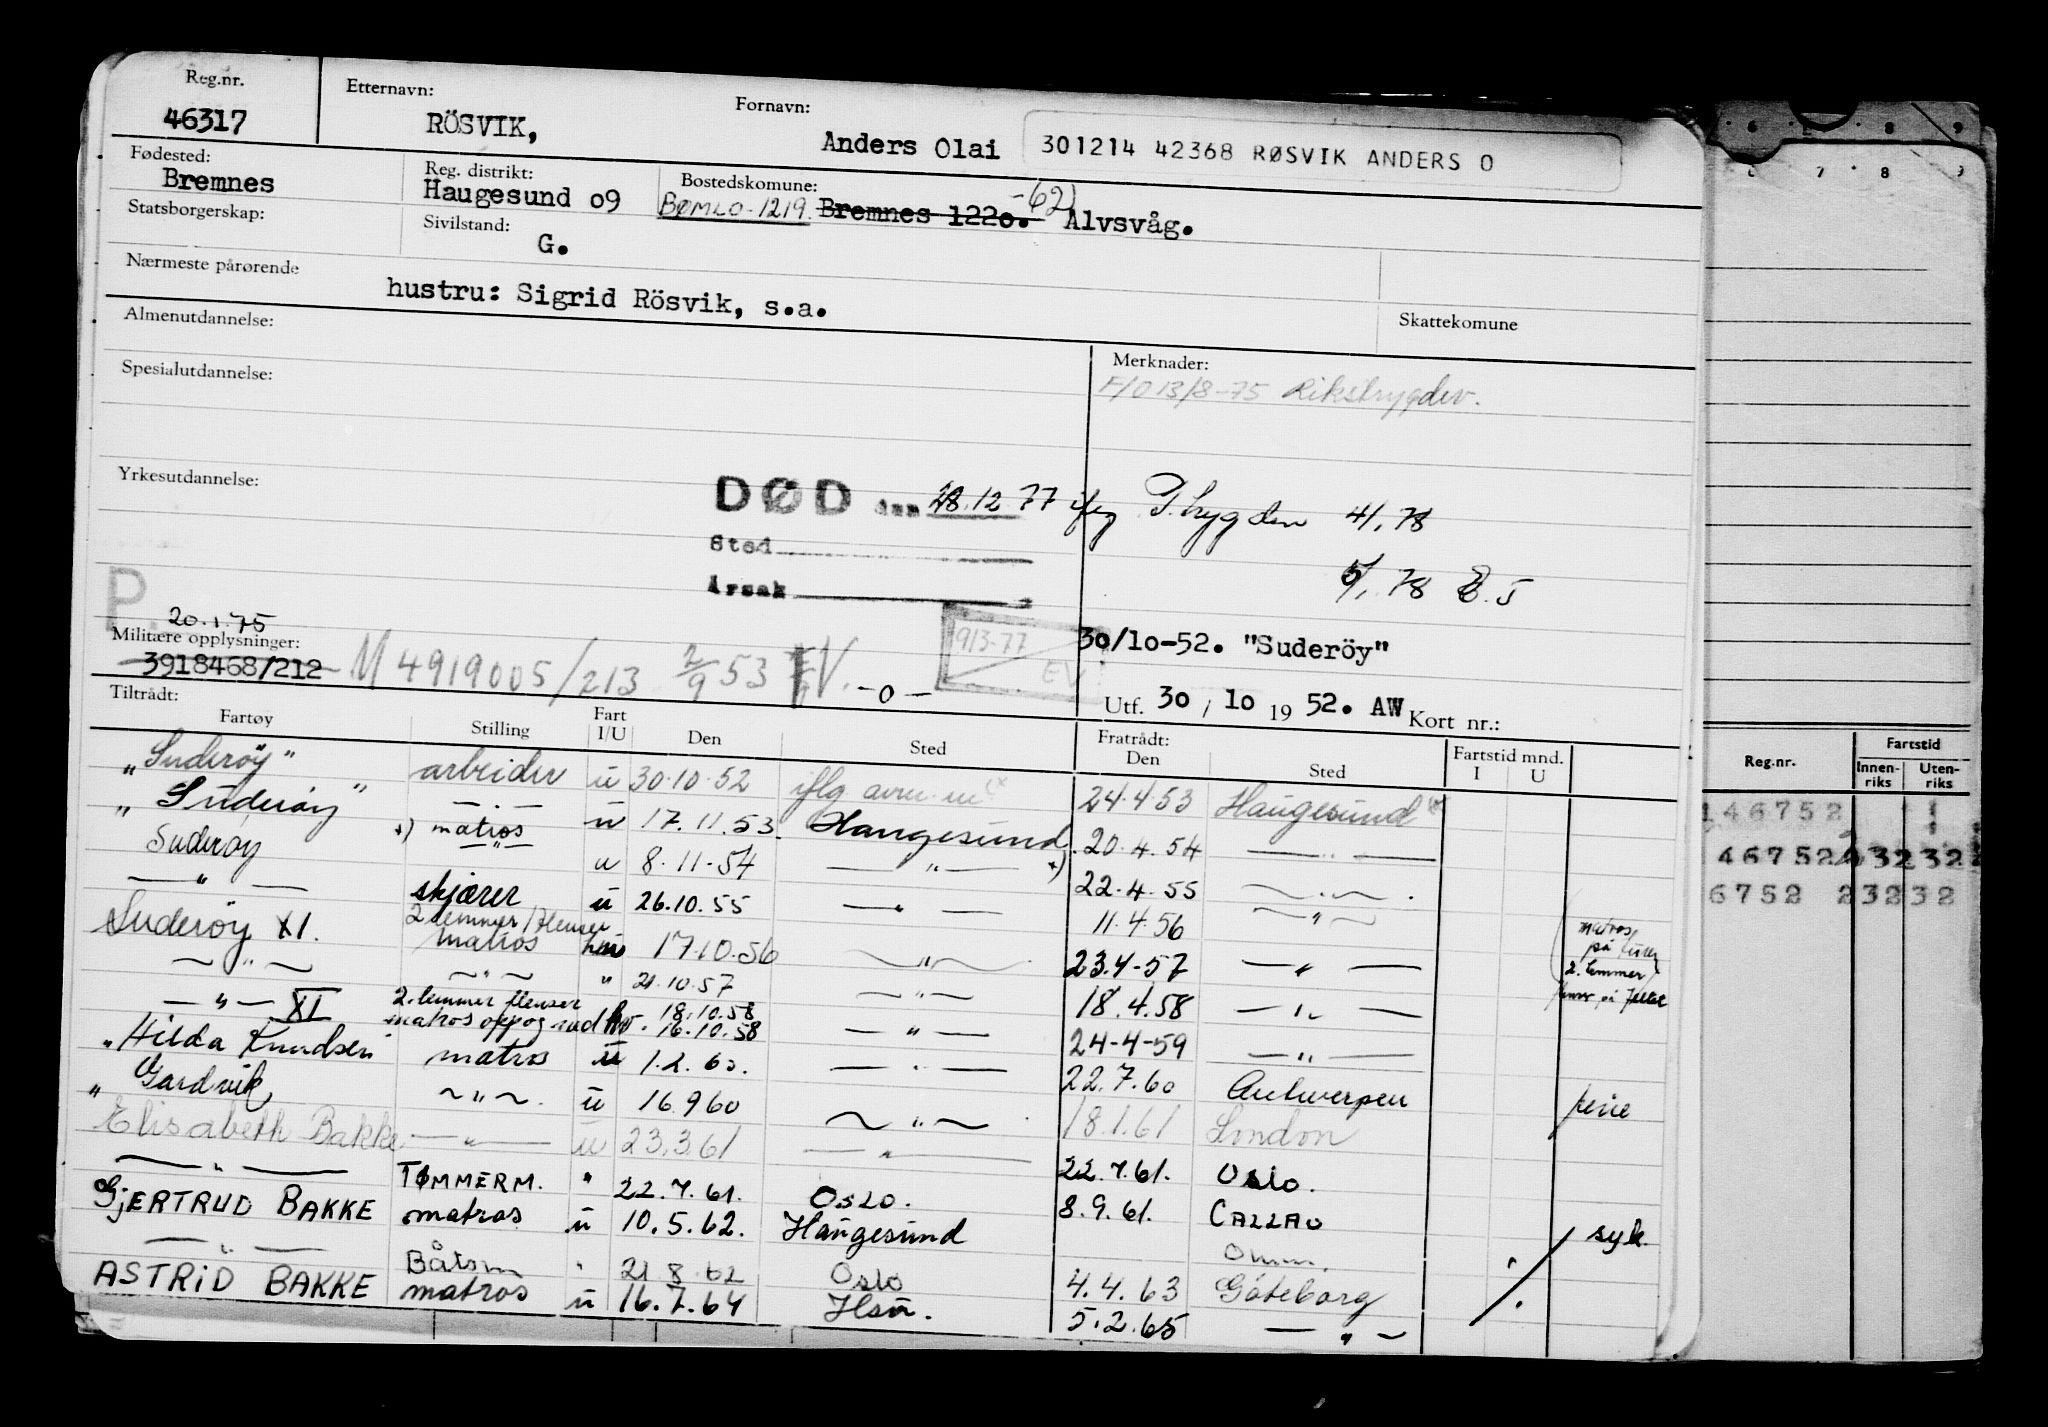 Reg.nr. Etternavn: Fornavn:
46317 RÖSVIK, Anders Olai 301214 42368 RØSVIK ANDERS O
Fødested: Reg. distrikt: Bostedskomune:
Bremnes Haugesund o9 BØMLO-1219. Bremnes 122o. -62) Alvsvåg.
Statsborgerskap: Sivilstand:
G.
Nærmeste pårørende
hustru: Sigrid Rösvik, s.a.
Almenutdannelse: Skattekomune
Spesialutdannelse: Merknader:
F/O 13/8-75 Rikstrygdev.
Yrkesutdannelse:
DØD den 28.12.77 iføg P.trygden 4/1.78
Sted
5/1.78
Årsak
P.
20.1.75
Militære opplysninger: 913-77 30/10-52. "Suderöy"
3918468/212 M 4919005/213 2/9 53 -o- EV
Utf. 30 / 1o 19 52. AW Kort nr.:
Tiltrådt: Fratrådt: Fartstid mnd.
Fartøy Stilling Fart I/U Den Sted Den Sted I U
"Suderöy" arbeider u 30.10.52 iflg 24.4.53 Haugesund
"Suderöy" — " — u 17.11.53. Haugesund. 20.4.54 — " —
Suderøy x) matros u 8.11-54 — " — x) 22.4.55 — " —
— " — skjærer u 26.10.55 — " — 11.4.56 — " —
Suderöy XI. 2 lemmer/flenser matros 17.10.56 — " — 23.4-57 — " —
— " — — " — " 21.10.57 — " — 18.4.58 — " —
matros på
2. lemmer
— " — XI 2. lemmer flenser 18.10.58
matros 16.10.58 — " — 24-4-59 — " —
"Hilda Knudsen" matros u 1.2.60. — " — 22.7.60 Antwerpen ferie
" Gardvik — " — u 16.9 60 — " — 18.1.61 London
Elisabeth Bakke — " — u 23.3.61 — " — 22.7.61. OSLO.
— " — TØMMERM. " 22.7.61. OSLO. 8.9.61. CALLAO syk.
GJERTRUD BAKKE matros u 10.5.62. Haugesund Omm.
— " — Båtsm " 21 8 62 Oslo 4.4.63 Göteborg
ASTRID BAKKE matros u 16.7.64 Hsu. 5.2.65 — " —
6 8 9
7 8 9
Reg.nr. Fartstid
Innenriks Utenriks
146752
46752 232 32
6752 232 32